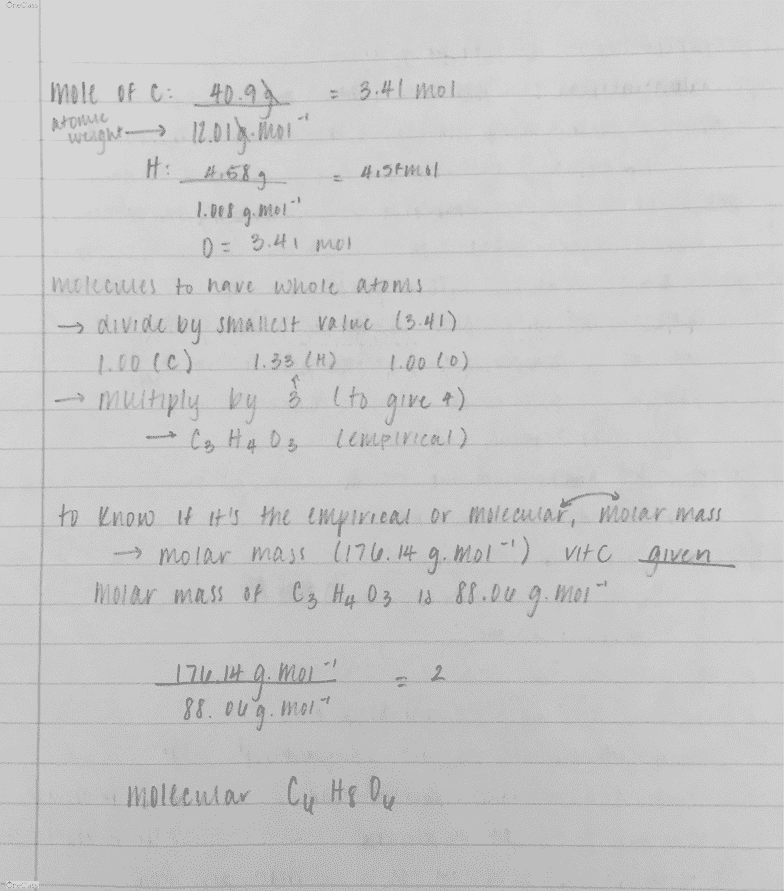 OneClass
mole of C: 40.9g = 3.41 mol
atomic
weight → 12.01g.mol⁻¹
H: 4.58g = 4.54mol
1.008 g.mol⁻¹
O = 3.41 mol
molecules to have whole atoms
→ divide by smallest value (3.41)
1.00 (C) 1.33 (H) 1.00 (O)
→ multiply by 3 (to give 4)
→ C₃ H₄ O₃ (empirical)
to know if it's the empirical or molecular, molar mass
→ molar mass (176.14 g.mol⁻¹) vit C given
Molar mass of C₃ H₄ O₃ is 88.06 g.mol⁻¹
176.14 g.mol⁻¹ = 2
88.06 g.mol⁻¹
molecular C₆ H₈ O₆
OneClass